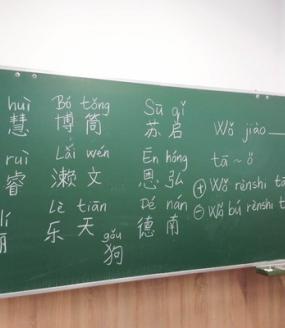 huì Bó tǒng Sū qǐ
慧 博 筒 苏 启 Wǒ jiào
ruì Lǎi wén Ēn hóng tā ~ ǒ
睿 濑 文 恩 弘 ⊕ Wǒ rènshi tā
lí Lè tiān Dé nán ⊖ Wǒ bú rènshi t
丽 乐 天 德 南
gǒu
狗